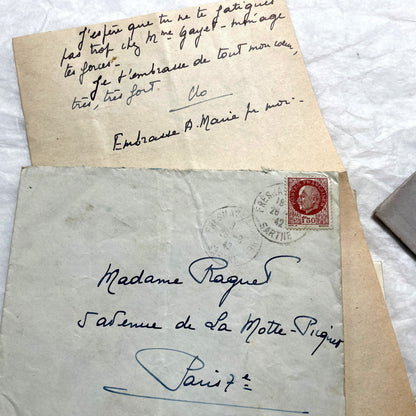 J'espère que tu ne te fatigues
pas trop chez Mme Gayet - ménage
tes forces -
Je t'embrasse de tout mon cœur,
très, très fort.
Clo
Embrasse A. Marie pr moi -
FRESNAY
18
26
42
SARTHE
1F50
Madame Raguet
5 avenue de La Motte-Picquet
Paris 7e